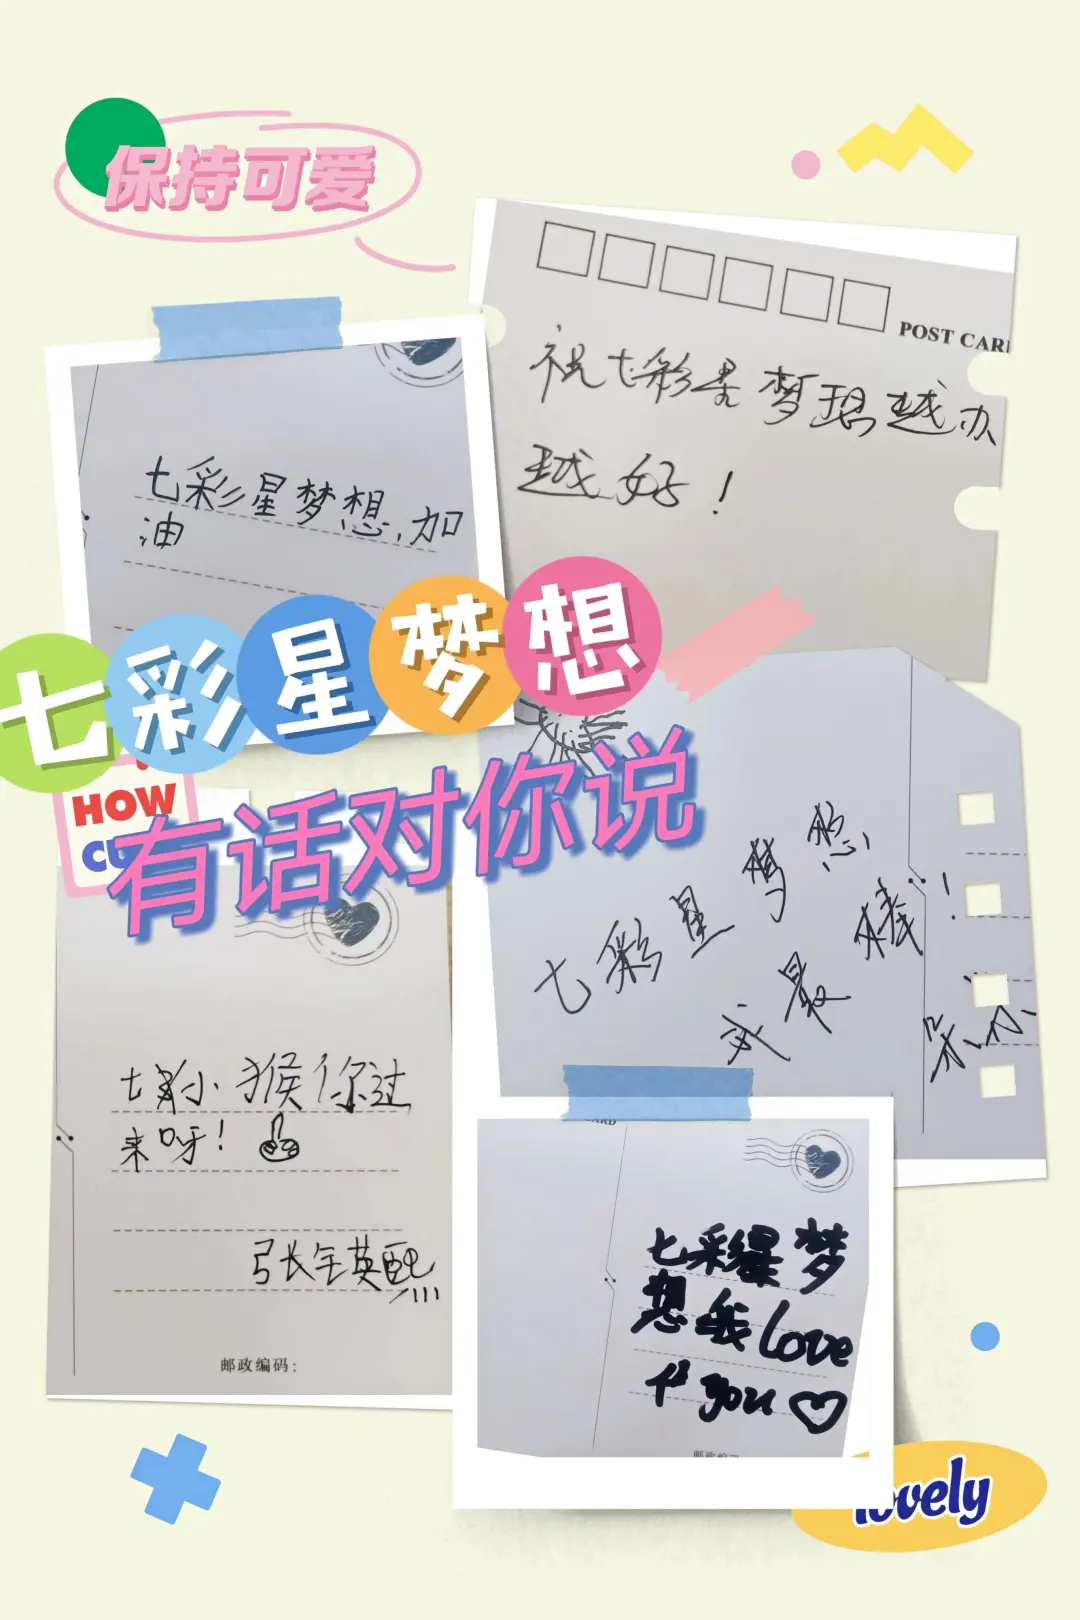 保持可爱
POST CAR
祝七彩星梦想越办
越好！
七彩星梦想,加
油
七彩星梦想
有话对你说
HOW
七彩星梦想
最棒！
七彩小猴你过
来呀！
邮政编码：
七彩星梦
想我Love
you
lovely